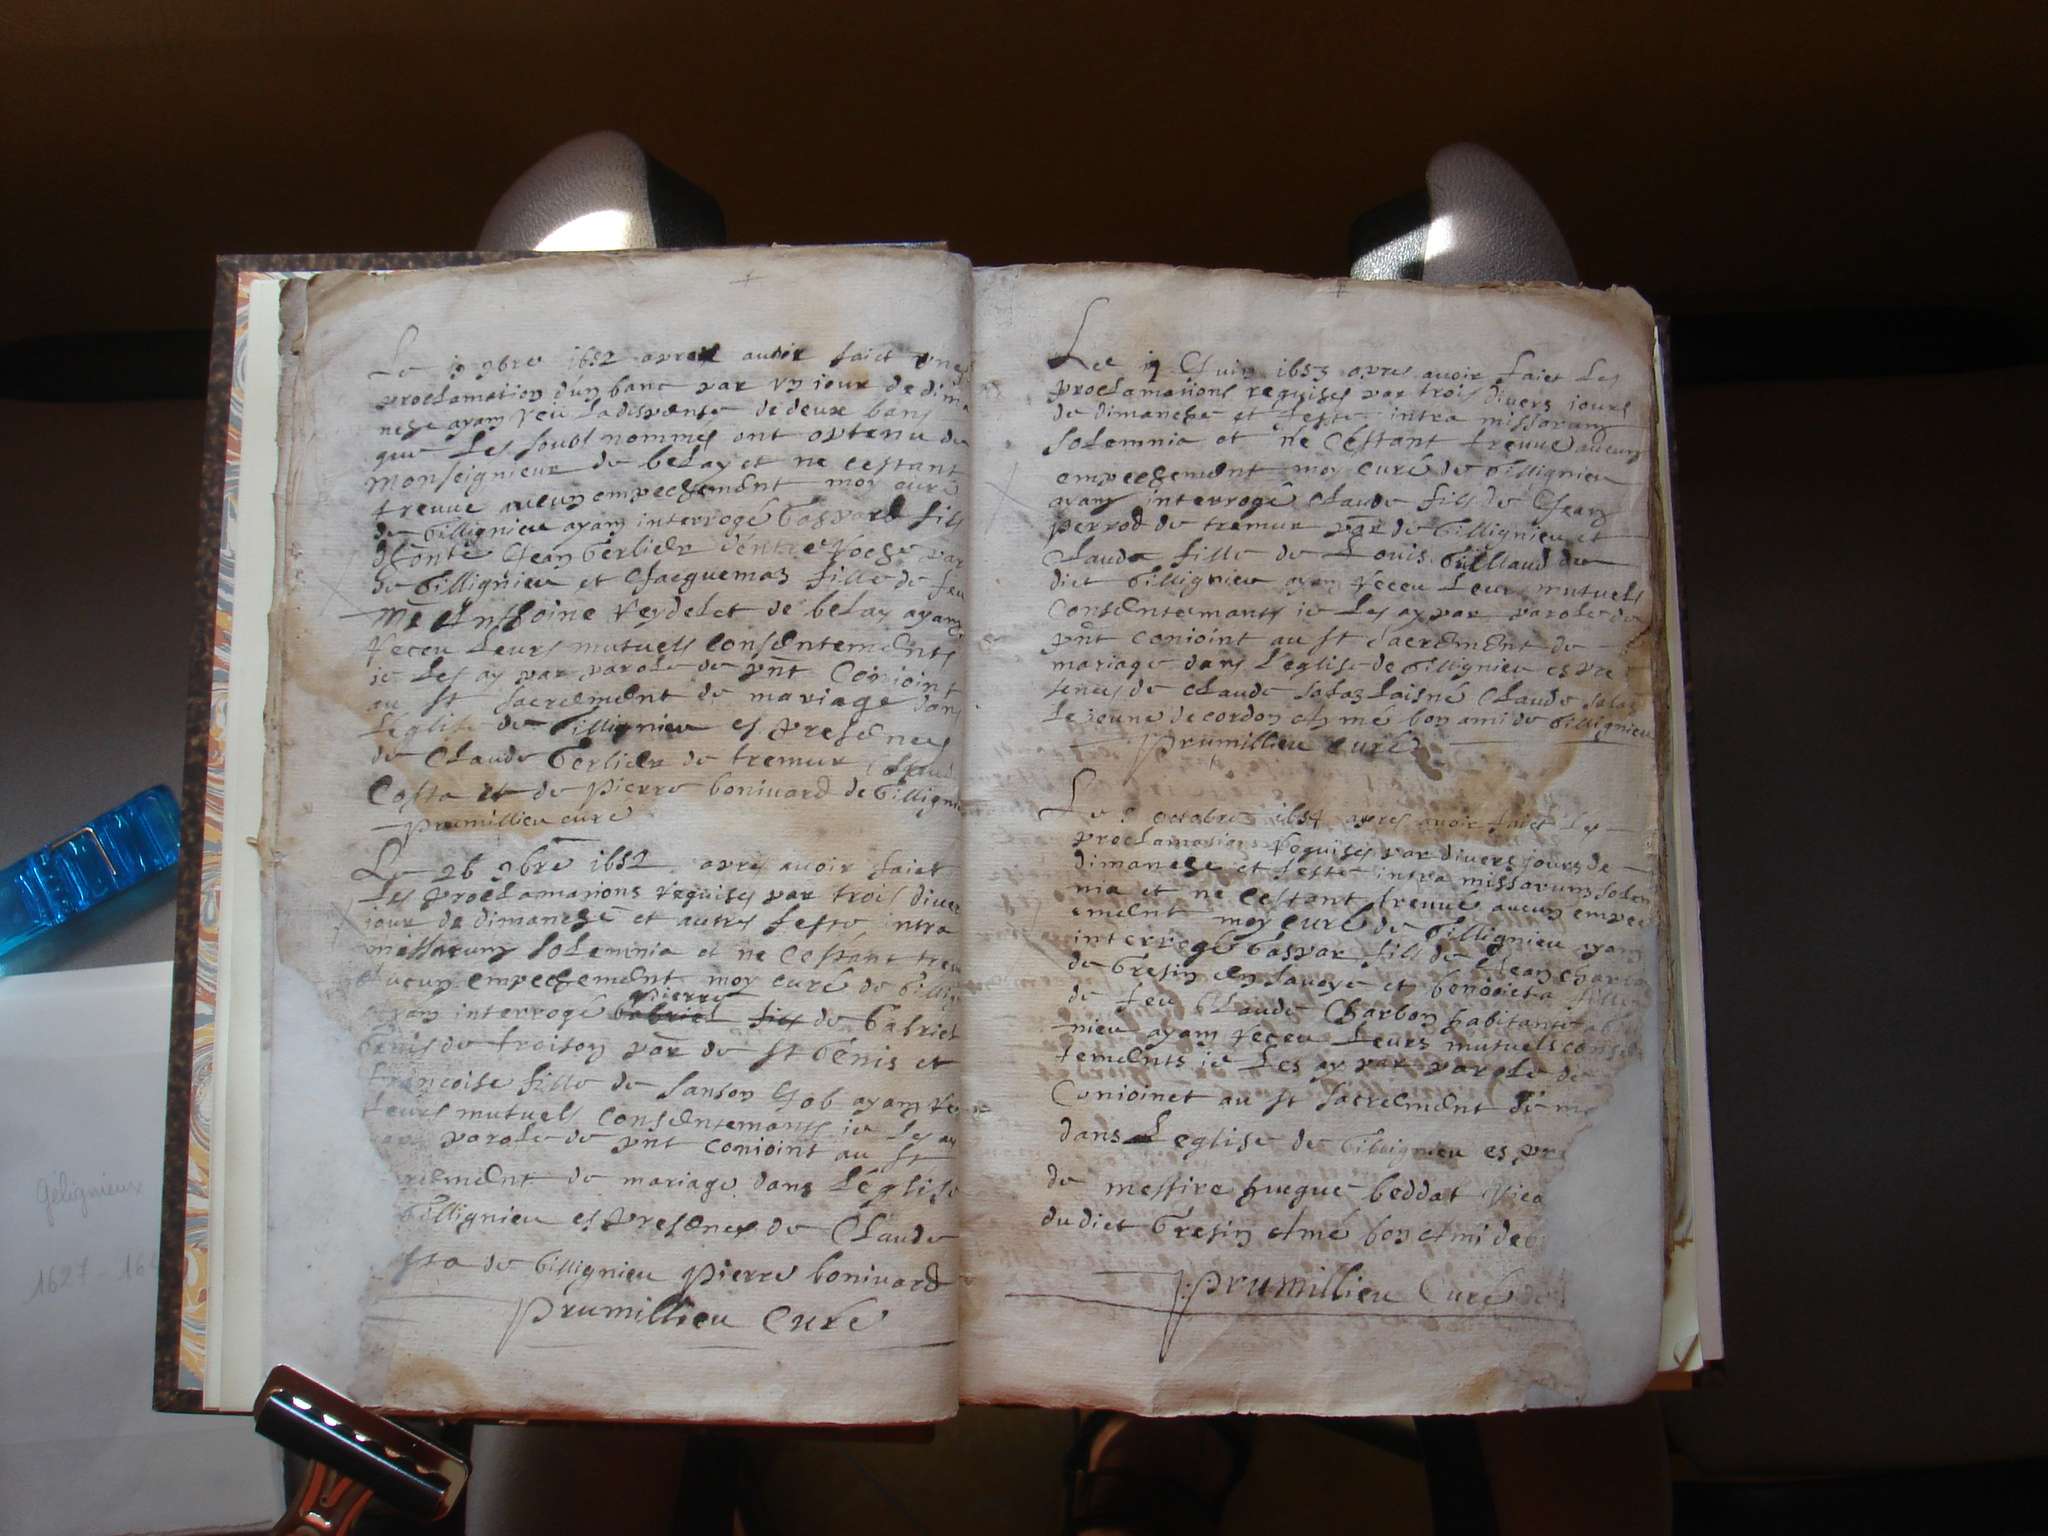 Le 19 9bre 1652 apres avoir faict une
proclamation d'un banc par un jour de dima
nche ayan veu la dispense de deux bans
que les soubs nommés ont optenu de
monseignieur de belay et ne cestant
treuvé aucun empechement moy curé
de Gillignieu ayan interrogé Gaspard fils
Jean Gerlier d'entre Roche par
de Gillignieu et Jacquemaz fille de feu
Mre Anthoine Verdelet de belay ayan
receu leurs mutuels consentements
ie les ay par parole de pnt conioint
au St sacrement de mariage dans
l'eglise de Gillignieu es presences
de Claude Gerlier de tremur Claud
Costa et de pierre bonivard de Gillignie
prumillieu curé
Le 26 9bre 1652 apres avoir faict
les proclamations requises par trois diver
jour de dimanche et autres feste, intra
missarum solemnia et ne cestant treu
aucun empechement moy curé de Gillig
ayan interrogé pierre Gabriel fils de Gabriel
de troison par de St Genis et
francoise fille de Sanson Job ayan re
leurs mutuels consentemants ie les ay
par parole de pnt conioint au St
crement de mariage dans l'eglise
Gillignieu es presences de Claude
sta de Gillignieu pierre bonivard
Prumillieu Curé
Le Juin 1653 apres avoir faict les
proclamations requises par trois divers jours
de dimanche et feste intra missarum
solemnia et ne cestant treuvé aucun
empechement moy curé de Gillignieu
ayan interrogé Claude fils de Jean
perrod de tremur par de Gillignieu et
Claude fille de Louis Guilland du
dict Gillignieu ayan receu leurs mutuels
consentemants ie les ay par parole de
pnt conioint au St sacrement de
mariage dans l'eglise de Gillignieu es pre
sences de Claude Salaz laisné Claude Salaz
le jeune de cordon Amé bon ami de Gillignieu
prumillieu curé
Le octobre 1654 apres avoir faict les
proclamations requises par divers jours de
dimanche et feste intra missarum solem
nia et ne cestant treuvé aucun empec
ement moy curé de Gillignieu ayan
interrogé Gaspar fils de Jean
de Gresin en Savoye et benoicte fille
de feu Claude Charbon habitant
nieu ayan receu leurs mutuels consen
tements ie les ay par parole de
Conioinct au St sacrement de ma
dans l'eglise de Gillignieu es pre
de messire hugue beddat vica
du dict Gresin Amé bon Ami de
Prumillieu Curé
Gélignieux
1627 - 16